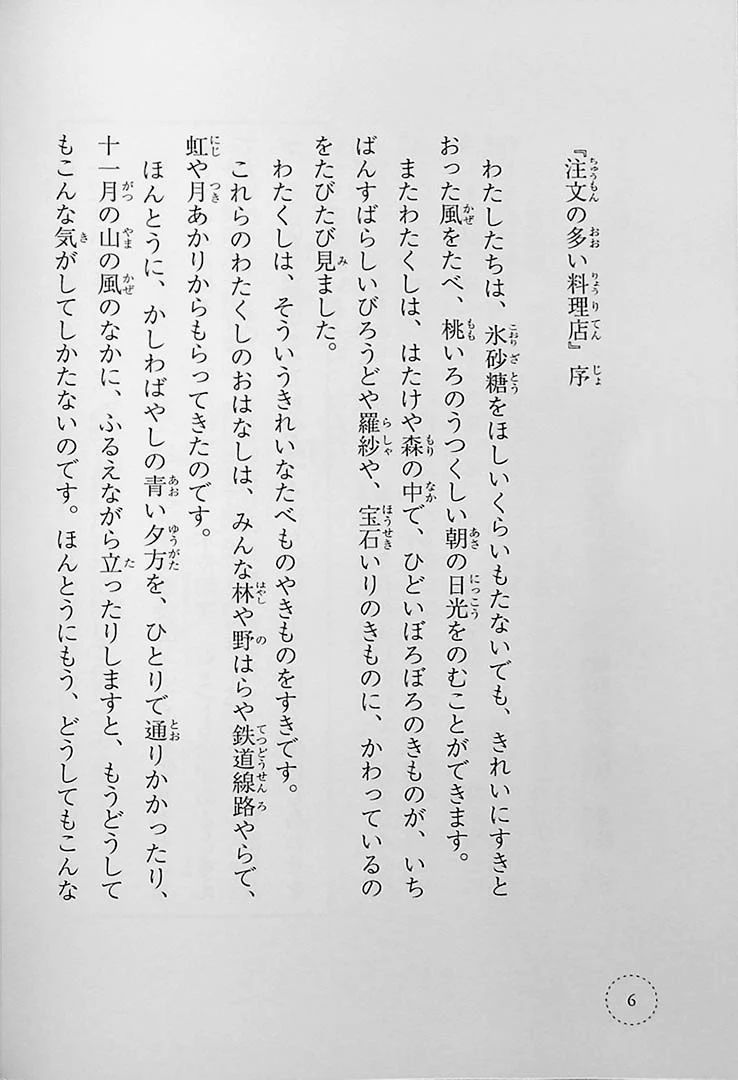 『注文の多い料理店』序
わたしたちは、氷砂糖をほしいくらいもたないでも、きれいにすきと
おった風をたべ、桃いろのうつくしい朝の日光をのむことができます。
またわたくしは、はたけや森の中で、ひどいぼろぼろのきものが、いち
ばんすばらしいびろうどや羅紗や、宝石いりのきものに、かわっているの
をたびたび見ました。
わたくしは、そういうきれいなたべものやきものをすきです。
これらのわたくしのおはなしは、みんな林や野はらや鉄道線路やらで、
虹や月あかりからもらってきたのです。
ほんとうに、かしわばやしの青い夕方を、ひとりで通りかかったり、
十一月の山の風のなかに、ふるえながら立ったりしますと、もうどうして
もこんな気がしてしかたないのです。ほんとうにもう、どうしてもこんな
6